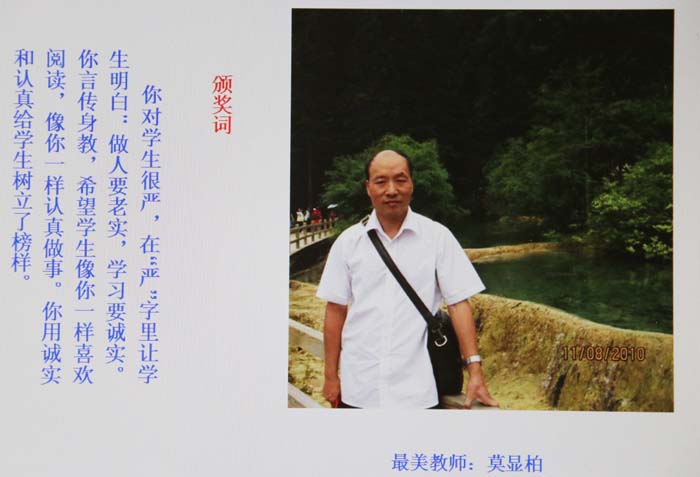 颁奖词
你对学生很严，在“严”字里让学
生明白：做人要老实，学习要诚实。
你言传身教，希望学生像你一样喜欢
阅读，像你一样认真做事。你用诚实
和认真给学生树立了榜样。
11/08/2010
最美教师：莫显柏